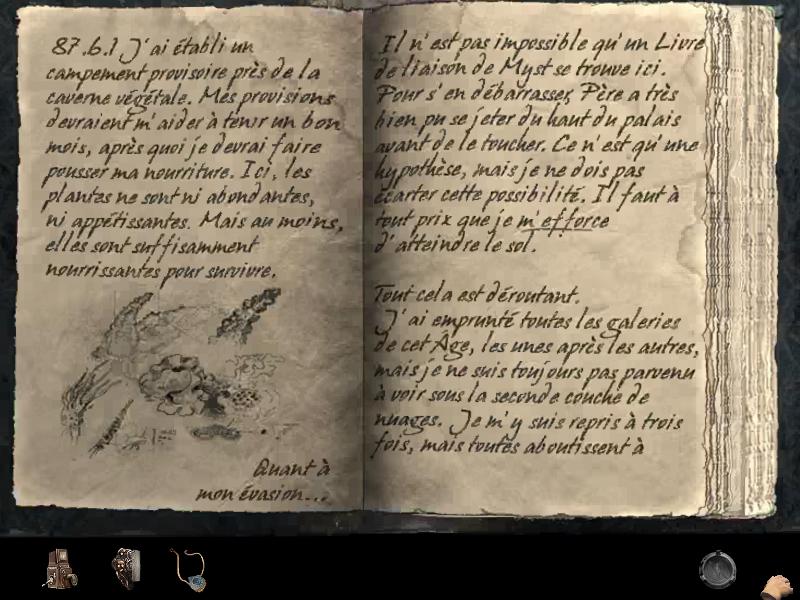 87.6.1 J'ai établi un
campement provisoire près de la
caverne végétale. Mes provisions
devraient m'aider à tenir un bon
mois, après quoi je devrai faire
pousser ma nourriture. Ici, les
plantes ne sont ni abondantes,
ni appétissantes. Mais au moins,
elles sont suffisamment
nourrissantes pour survivre.
Quant à
mon évasion...
Il n'est pas impossible qu'un Livre
de liaison de Myst se trouve ici.
Pour s'en débarrasser, Père a très
bien pu se jeter du haut du palais
avant de le toucher. Ce n'est qu'une
hypothèse, mais je ne dois pas
écarter cette possibilité. Il faut à
tout prix que je m'efforce
d'atteindre le sol.
Tout cela est déroutant.
J'ai emprunté toutes les galeries
de cet Âge, les unes après les autres,
mais je ne suis toujours pas parvenu
à voir sous la seconde couche de
nuages. Je m'y suis repris à trois
fois, mais toutes aboutissent à